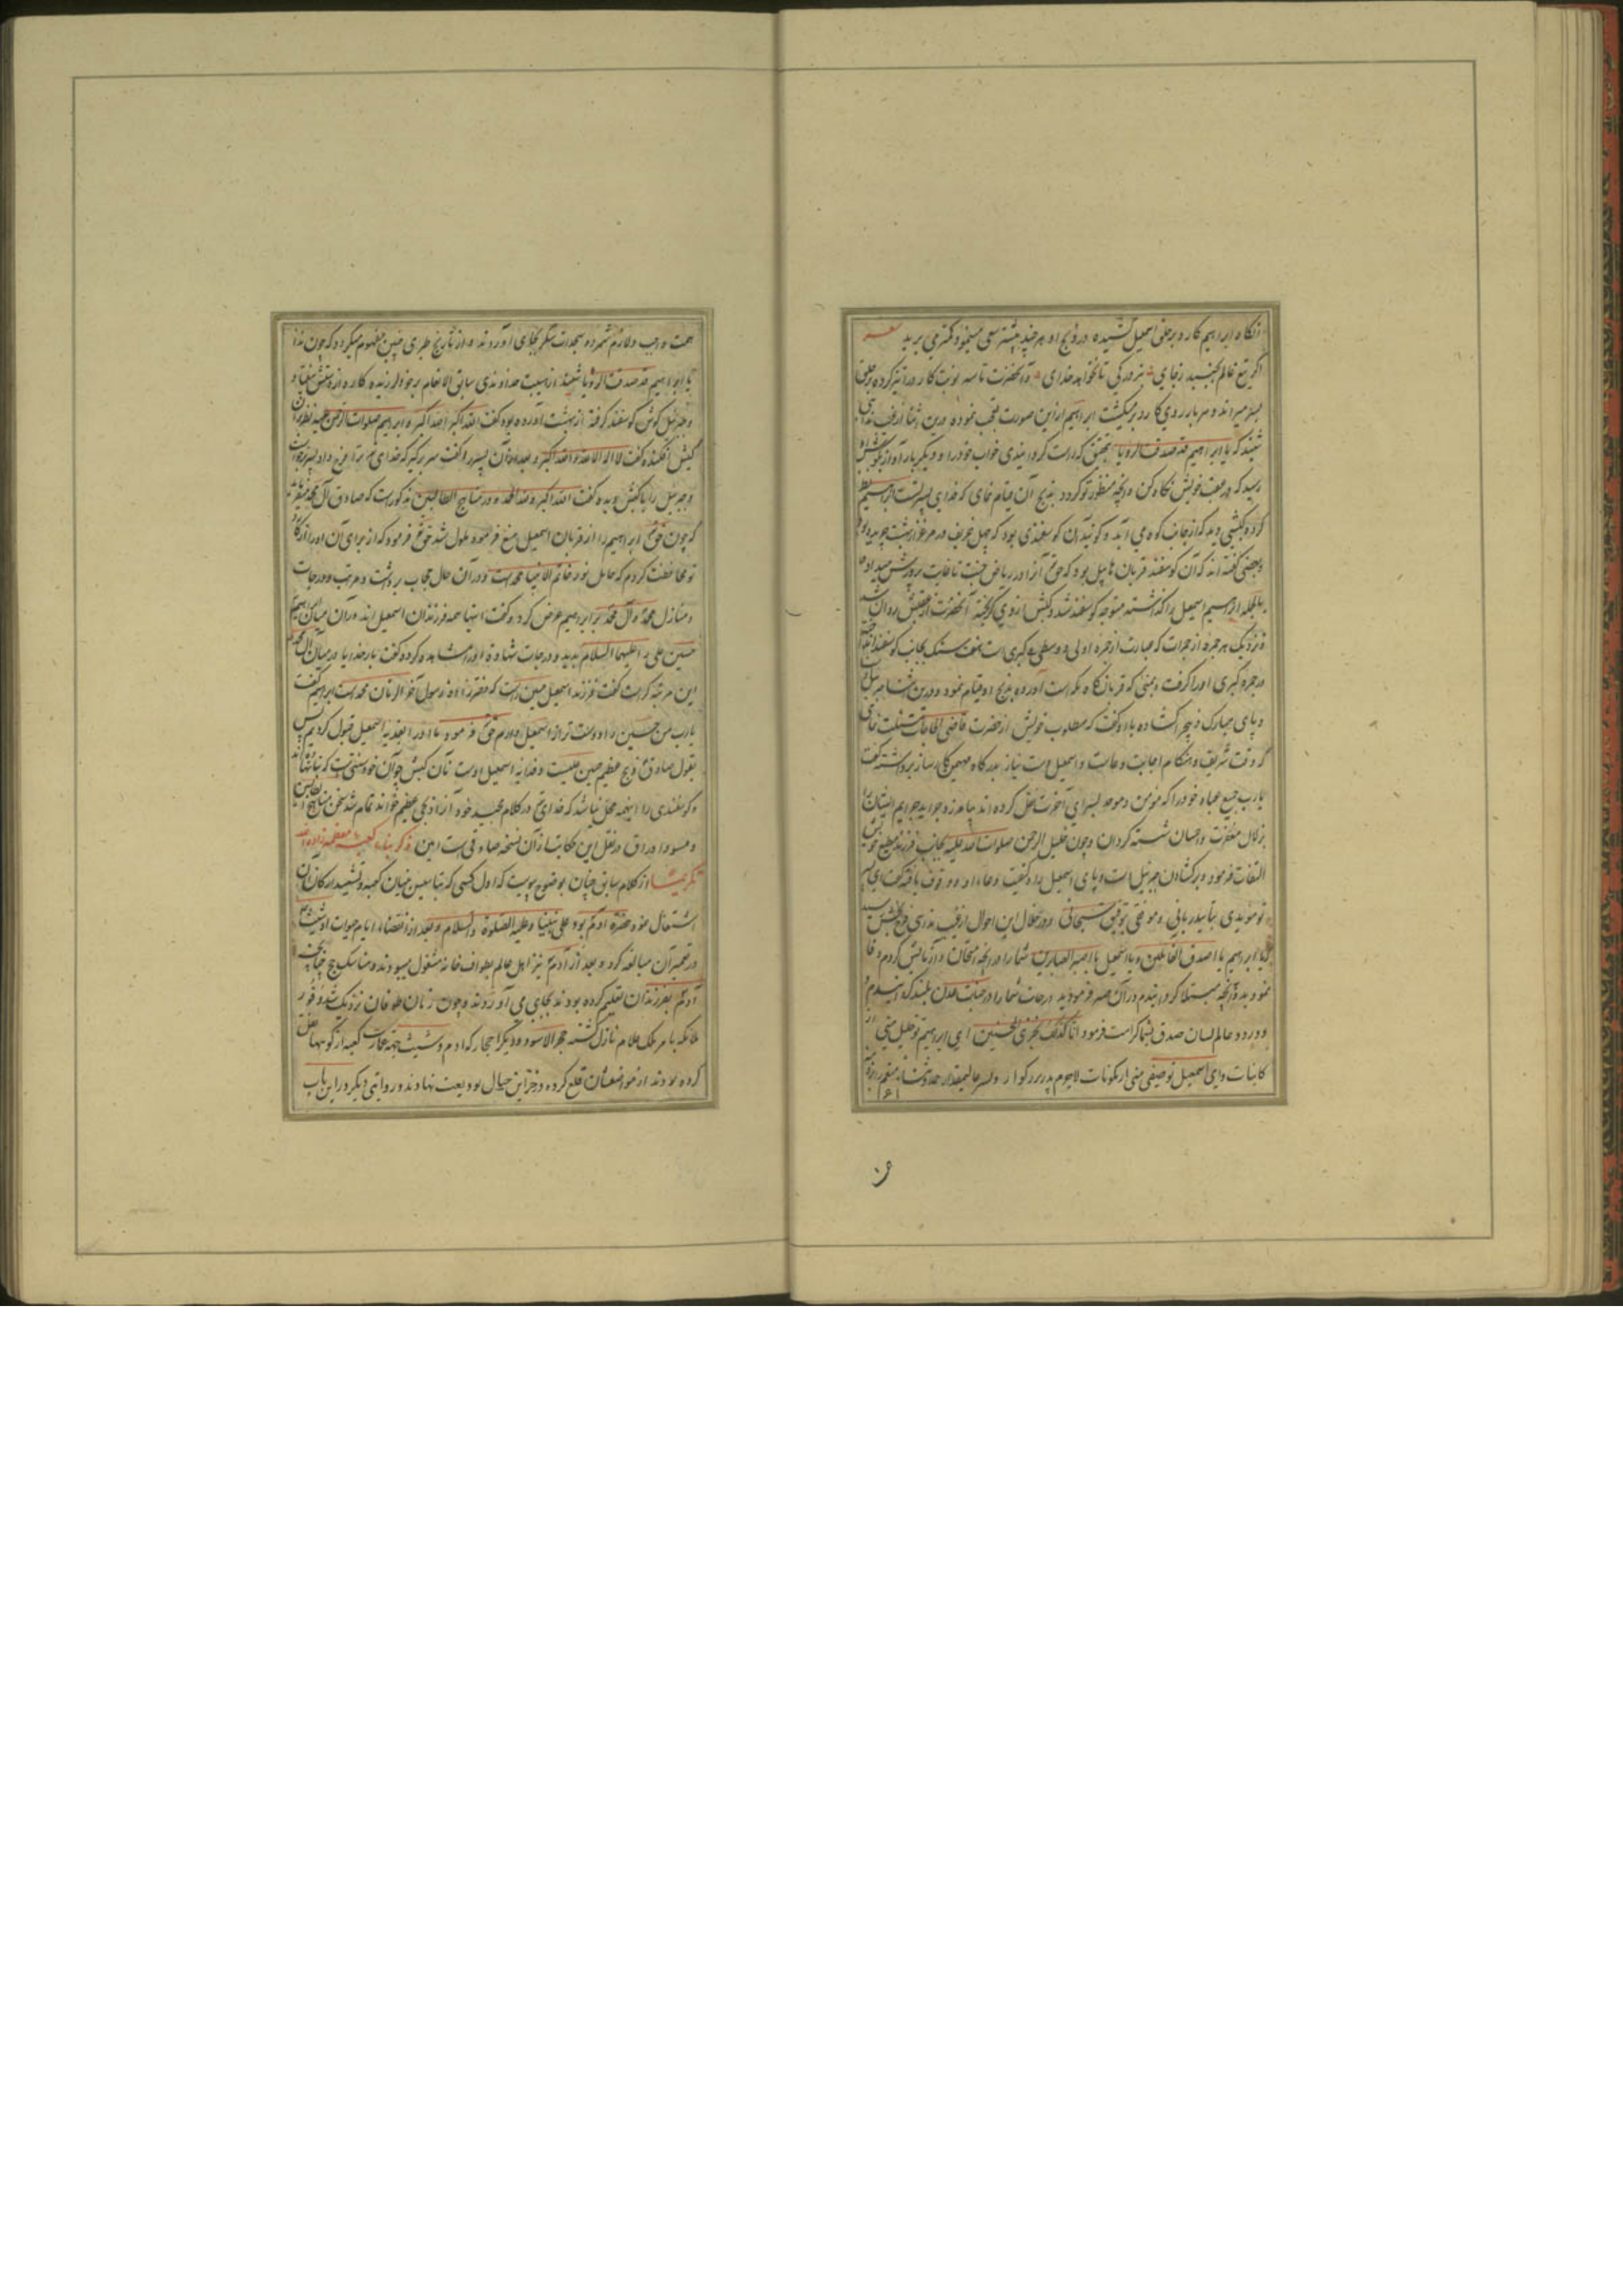 آنگاه ابراهیم کارد بر حلق اسمعیل کشیده در ذبح او هر چند بیشتر سعی مینمود کمتر می برید شعر
اگر تیغ عالم بجنبد ز جای نبرد رگی تا نخواهد خدای و آنحضرت تا سه نوبت کارد را تیز کرده بر حلق
پسر میراند و هر بار روی کارد بر میکشت ابراهیم ازین صورت تعجب نموده درین اثنا از غیب ندائی
شنید که یا ابراهیم قد صدقت الرؤیا بتحقیق که راست گردانیدی خواب خود را و دیگر بار آواز بگوشش
رسید که در عقب خویش نگاه کن و آنچه منظور تو گردد بذبح آن قیام نمای که فدای پسر تست ابراهیم نظر
کرده کبشی دید که از جانب کوه می آید و گویند آن گوسفندی بود که چهل خریف در مرغزار بهشت چریده بود
و بعضی گفته اند که آن گوسفند قربان هابیل بود که حق آنرا در ریاض جنت تا غایت پرورش میداد
بالجمله ابراهیم اسمعیل را گذاشته متوجه گوسفند شد و کبش از وی گریخته آنحضرت از عقبش روان شد
و نزدیک هر جمره از جمرات که عبارت از جمره اولی و وسطی و کبری است هفت سنگ بجانب گوسفند انداخته
در جمره کبری او را گرفت و بمنی که قربانگاه مکه است آورده بذبح او قیام نمود و درین اثنا جبرئیل
و پای مبارک ذبیح را گشاده با او گفت که مطلوب خویش از حضرت قاضی الحاجات مسئلت نمای
که وقت شریف و هنگام اجابت دعاست و اسمعیل دست نیاز بدرگاه مهیمن کارساز برداشته گفت
یا رب جمیع عباد خود را که مؤمن و موحد بسرای آخرت نقل کرده اند بیامرز و جراید جرایم ایشان را
بزلال مغفرت و احسان شسته گردان و چون خلیل الرحمن صلوات الله علیه بجانب فرزند مطیع خویش
التفات فرمود و بر گشادن جبرئیل دست و پای اسمعیل را و کیفیت دعاء او وقوف یافته گفت ای پسر
تو مؤیدی بتأیید ربانی و موفقی بتوفیق سبحانی و در خلال این احوال از غیب ندائی بگوشش رسید
که یا ابراهیم یا اصدق القائلین و یا اسمعیل یا اصبر الصابرین شما را در آنچه امتحان و آزمایش کردم وفا
نمودید و بآنچه مبتلا گردانیدم در آن صبر فرمودید درجات شما را در جنات عدن بلند گردانیدم
و در دو عالم لسان صدق بشما کرامت فرمود انا کذلک نجزی المحسنین ای ابراهیم تو خلیل منی از
کاینات و ای اسمعیل تو صفی منی از مکونات لاجرم پدر بزرگوار و پسر عالیمقدار حمد و ثناء منعم
همت واجب و لازم شمرده سجدات شکر بجای آوردند و از تاریخ طبری چنین مفهوم میگردد که چون ندا
یا ابراهیم قد صدقت الرؤیا شنید از هیبت خداوندی سابق الانعام بر خود لرزیده کارد از دستش بیفتاد
و جبرئیل گوش گوسفند گرفته از بهشت آورده بود گفت الله اکبر الله اکبر و ابراهیم صلوات الرحمن علیه نظر بر آن
کبش افکنده گفت لا اله الا الله و الله اکبر و بعد از آن پسر را گفت سر برگیر که خدای ترا فرج داد پسر برخاست
و جبرئیل را با کبش دیده گفت الله اکبر و لله الحمد و در مناهج الطالبین مذکور است که صادق آل محمد میفرماید
که چون حق ابراهیم را از قربان اسمعیل منع فرمود ملول شد حق فرمود که از برای آن او را از کارد
تو محافظت کردم که حامل نور خاتم الانبیا محمد است و در آن حال حجاب برداشت و مراتب و درجات
و منازل محمد و آل محمد بر ابراهیم عرض کرد و گفت اینها همه فرزندان اسمعیل اند و در آن میان ابراهیم
حسین علی را علیهما السلام بدید و درجات شهادة او را مشاهده کرده گفت بار خدایا در میان آل محمد
این مرتبه کراست گفت فرزند اسمعیل حسین راست که دخترزاده رسول آخر الزمان محمد است ابراهیم گفت
یا رب من حسین را دوست تر از اسمعیل دارم حق فرمود ما او را بفدیه اسمعیل قبول کردیم پس
بقول صادق ذبح عظیم حسین علیست و فدای اسمعیل اوست نه آن کبش
و گوسفندی را اینهمه محل نباشد که خدای در کلام مجید خود آنرا ذبح عظیم خواند تمام شد سخن مناهج الطالبین
و مسود اوراق در نقل این حکایت از آن نسخه صادقی است امین ذکر بناء کعبه معظمه زاده الله
تکریما از کلام سابق چنان بوضوح پیوست که اول کسی که بتأسیس بنیان کعبه و تشیید ارکان آن
اشتغال نمود حضرة آدم بود علی نبینا و علیه الصلوة و السلام و بعد از انقضاء ایام حیوة او شیث
در تعمیر آن مبالغه کرد و بعد از آدم نیز اهل عالم بطواف خانه مشغول میبودند و مناسک حج چنانچه
آدم بفرزندان تعلیم کرده بودند بجای می آوردند و چون زمان طوفان نزدیک شد
ملائکه بامر ملک علام نازل گشته حجر الاسود و دیگر احجار که آدم و شیث جهت عمارت کعبه از کوهها نقل
کرده بودند از مواضعشان قلع کرده در خزاین جبال بودیعت نهادند و روایتی دیگر در این باب